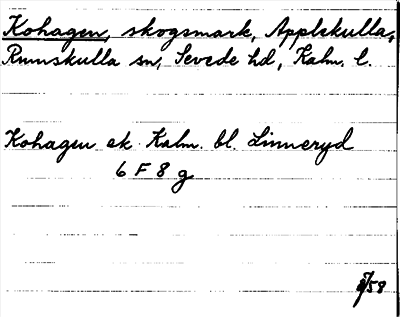 Kohagen, skogsmark, Applekulla,
Rumskulla sn, Sevede hd, Kalm. l.
Kohagen ek. Kalm. bl. Linneryd
6 F 8 g
58